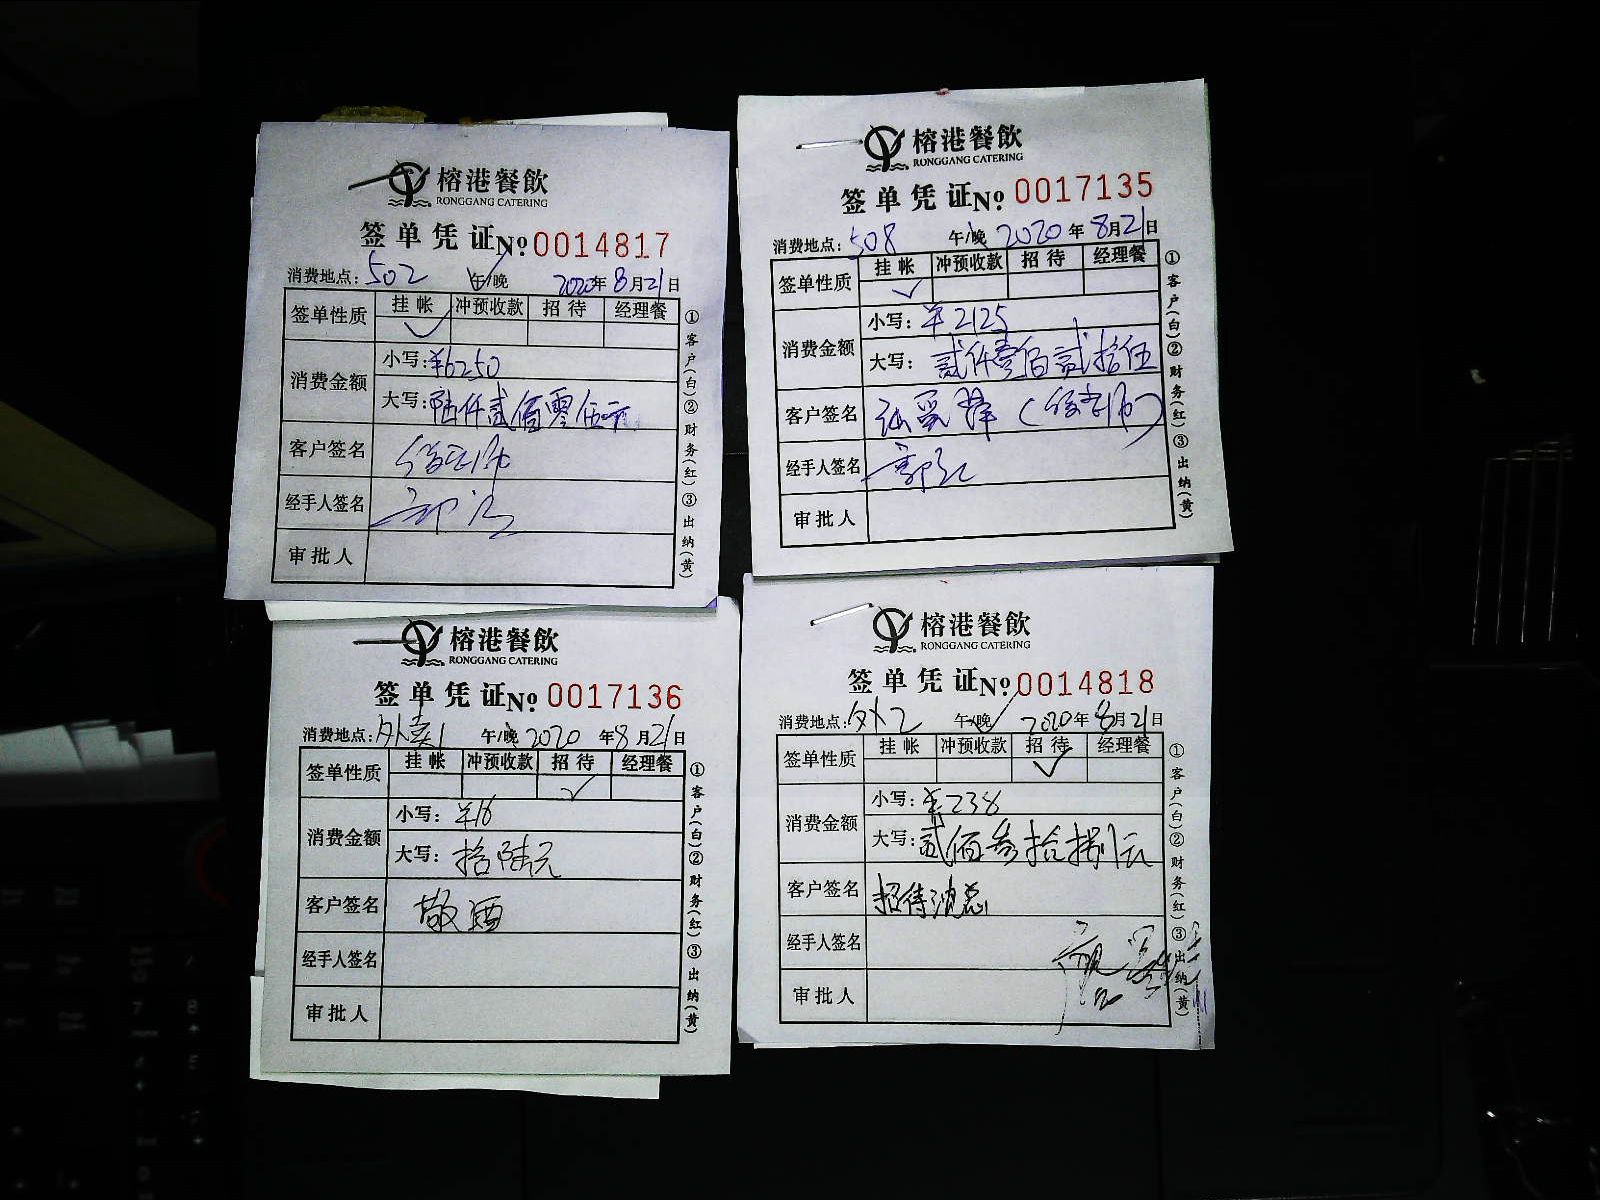 榕港餐飲
RONGGANG CATERING
签单凭证№0014817
消费地点：502 午/晚 2020年8月21日
签单性质 挂帐 冲预收款 招待 经理餐
消费金额
小写：¥6250
大写：陆仟贰佰零伍元
客户签名
经手人签名
审批人
①客户(白)②财务(红)③出纳(黄)
榕港餐飲
RONGGANG CATERING
签单凭证№0017135
消费地点：508 午/晚 2020年8月21日
签单性质 挂帐 冲预收款 招待 经理餐
消费金额
小写：¥2125
大写：贰仟壹佰贰拾伍
客户签名
经手人签名
审批人
①客户(白)②财务(红)③出纳(黄)
榕港餐飲
RONGGANG CATERING
签单凭证№0017136
消费地点：外卖1 午/晚 2020年8月21日
签单性质 挂帐 冲预收款 招待 经理餐
消费金额
小写：¥16
大写：拾陆元
客户签名 敬酒
经手人签名
审批人
①客户(白)②财务(红)③出纳(黄)
榕港餐飲
RONGGANG CATERING
签单凭证№0014818
消费地点：外2 午/晚 2020年8月21日
签单性质 挂帐 冲预收款 招待 经理餐
消费金额
小写：¥238
大写：贰佰叁拾捌元
客户签名 招待
经手人签名
审批人
①客户(白)②财务(红)③出纳(黄)